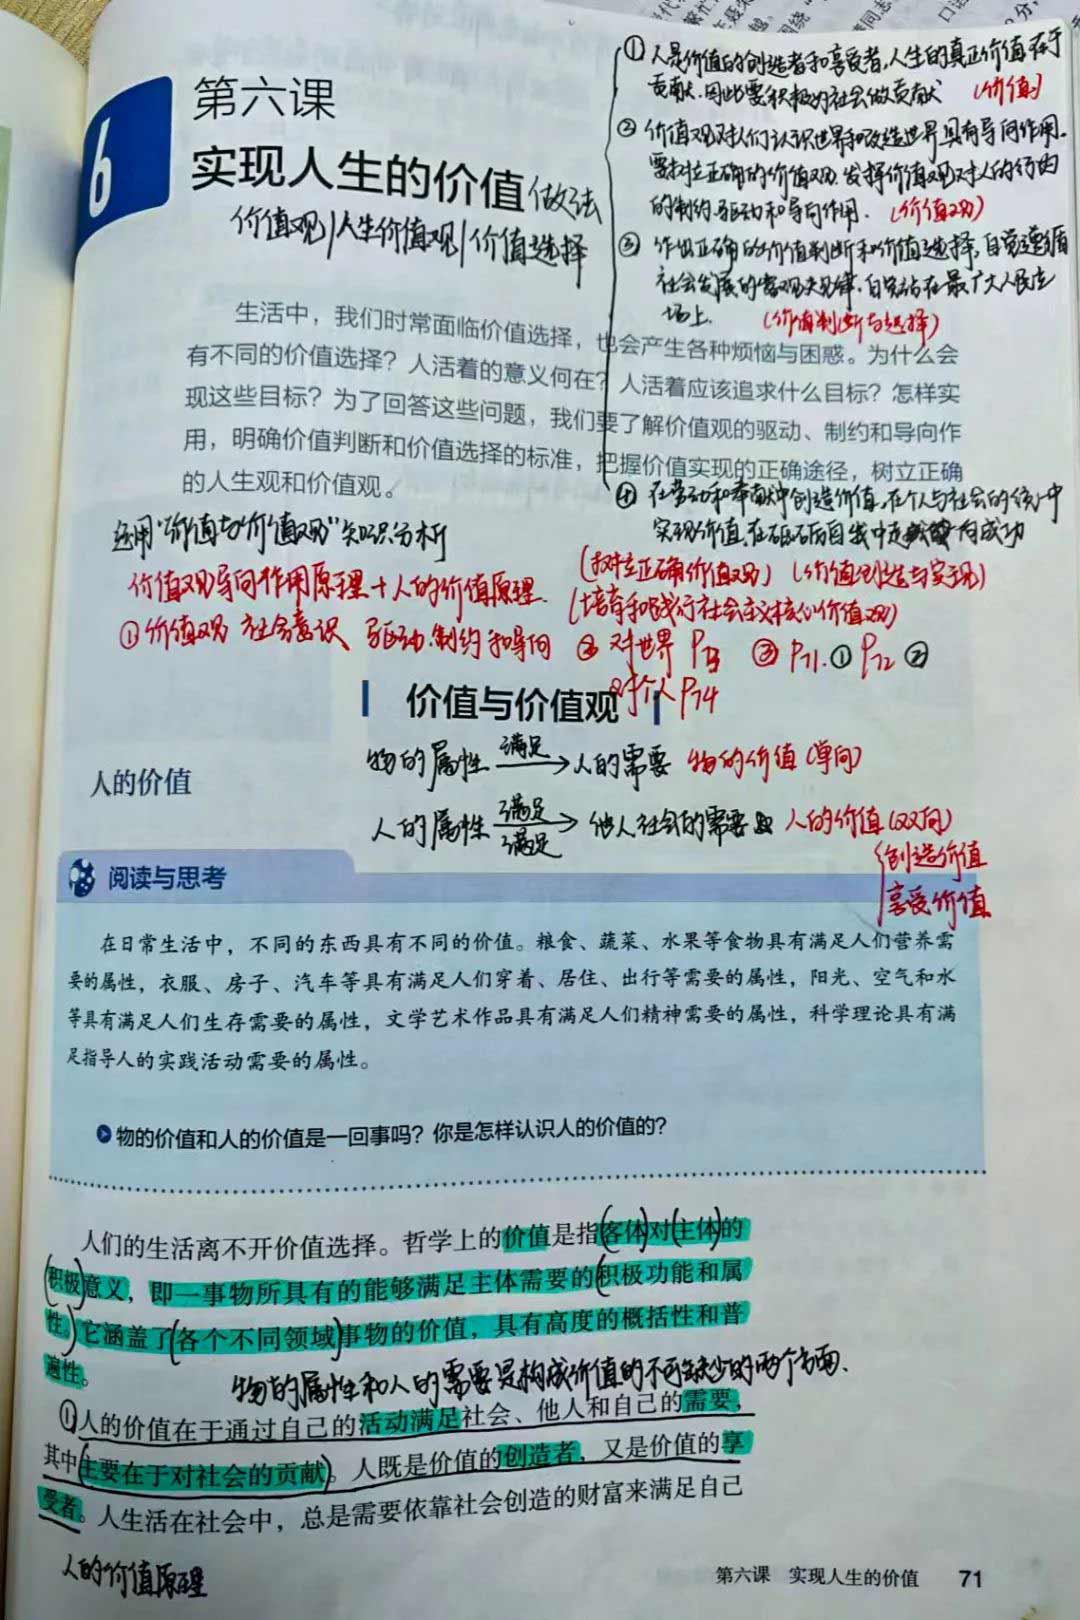 6
第六课
实现人生的价值 做法
价值观/人生价值观/价值选择
①人是价值的创造者和享受者,人生的真正价值在于
贡献.因此要积极为社会做贡献 (价值)
②价值观对人们认识世界和改造世界具有导向作用.
要树立正确的价值观.发挥价值观对人的行为
的制约.驱动和导向作用. (价值观)
③作出正确的价值判断和价值选择,自觉遵循
社会发展的客观规律.自觉站在最广大人民立
场上. (价值判断与选择)
生活中，我们时常面临价值选择，也会产生各种烦恼与困惑。为什么会
有不同的价值选择？人活着的意义何在？人活着应该追求什么目标？怎样实
现这些目标？为了回答这些问题，我们要了解价值观的驱动、制约和导向作
用，明确价值判断和价值选择的标准，把握价值实现的正确途径，树立正确
的人生观和价值观。
④在劳动和奉献中创造价值,在个人与社会的统一中
实现价值,在砥砺自我中走向成功
运用"价值与价值观"知识分析
(树立正确价值观) (价值创造与实现)
价值观导向作用原理+人的价值原理. (培育和践行社会主义核心价值观)
①价值观 社会意识 驱动.制约和导向 ②对世界 P73 ③P71.①P72②
对个人P74
价值与价值观
物的属性 满足→ 人的需要 物的价值(单向)
人的价值
人的属性 满足→ 他人社会的需要 人的价值(双向)
满足
创造价值
享受价值
阅读与思考
在日常生活中，不同的东西具有不同的价值。粮食、蔬菜、水果等食物具有满足人们营养需
要的属性，衣服、房子、汽车等具有满足人们穿着、居住、出行等需要的属性，阳光、空气和水
等具有满足人们生存需要的属性，文学艺术作品具有满足人们精神需要的属性，科学理论具有满
足指导人的实践活动需要的属性。
物的价值和人的价值是一回事吗？你是怎样认识人的价值的？
人们的生活离不开价值选择。哲学上的价值是指(客体)对(主体)的
(积极)意义，即一事物所具有的能够满足主体需要的(积极功能和属
性。)它涵盖了(各个不同领域)事物的价值，具有高度的概括性和普
遍性。
物的属性和人的需要是构成价值的不可缺少的两个方面.
①人的价值在于通过自己的活动满足社会、他人和自己的需要，
其中(主要在于对社会的贡献)。人既是价值的创造者，又是价值的享
受者。人生活在社会中，总是需要依靠社会创造的财富来满足自己
人的价值原理
第六课 实现人生的价值 71